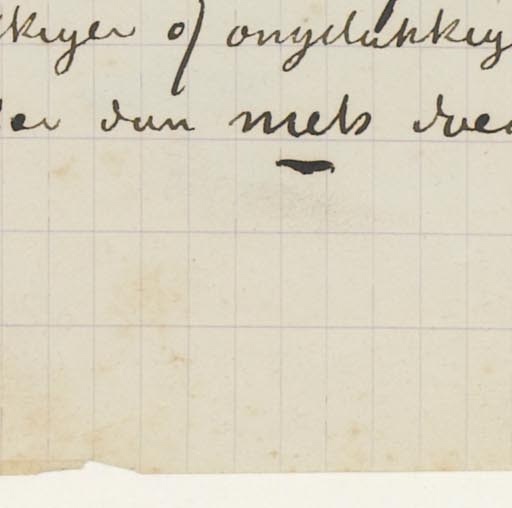 kkiger of ongelukkig
er dan niets doe